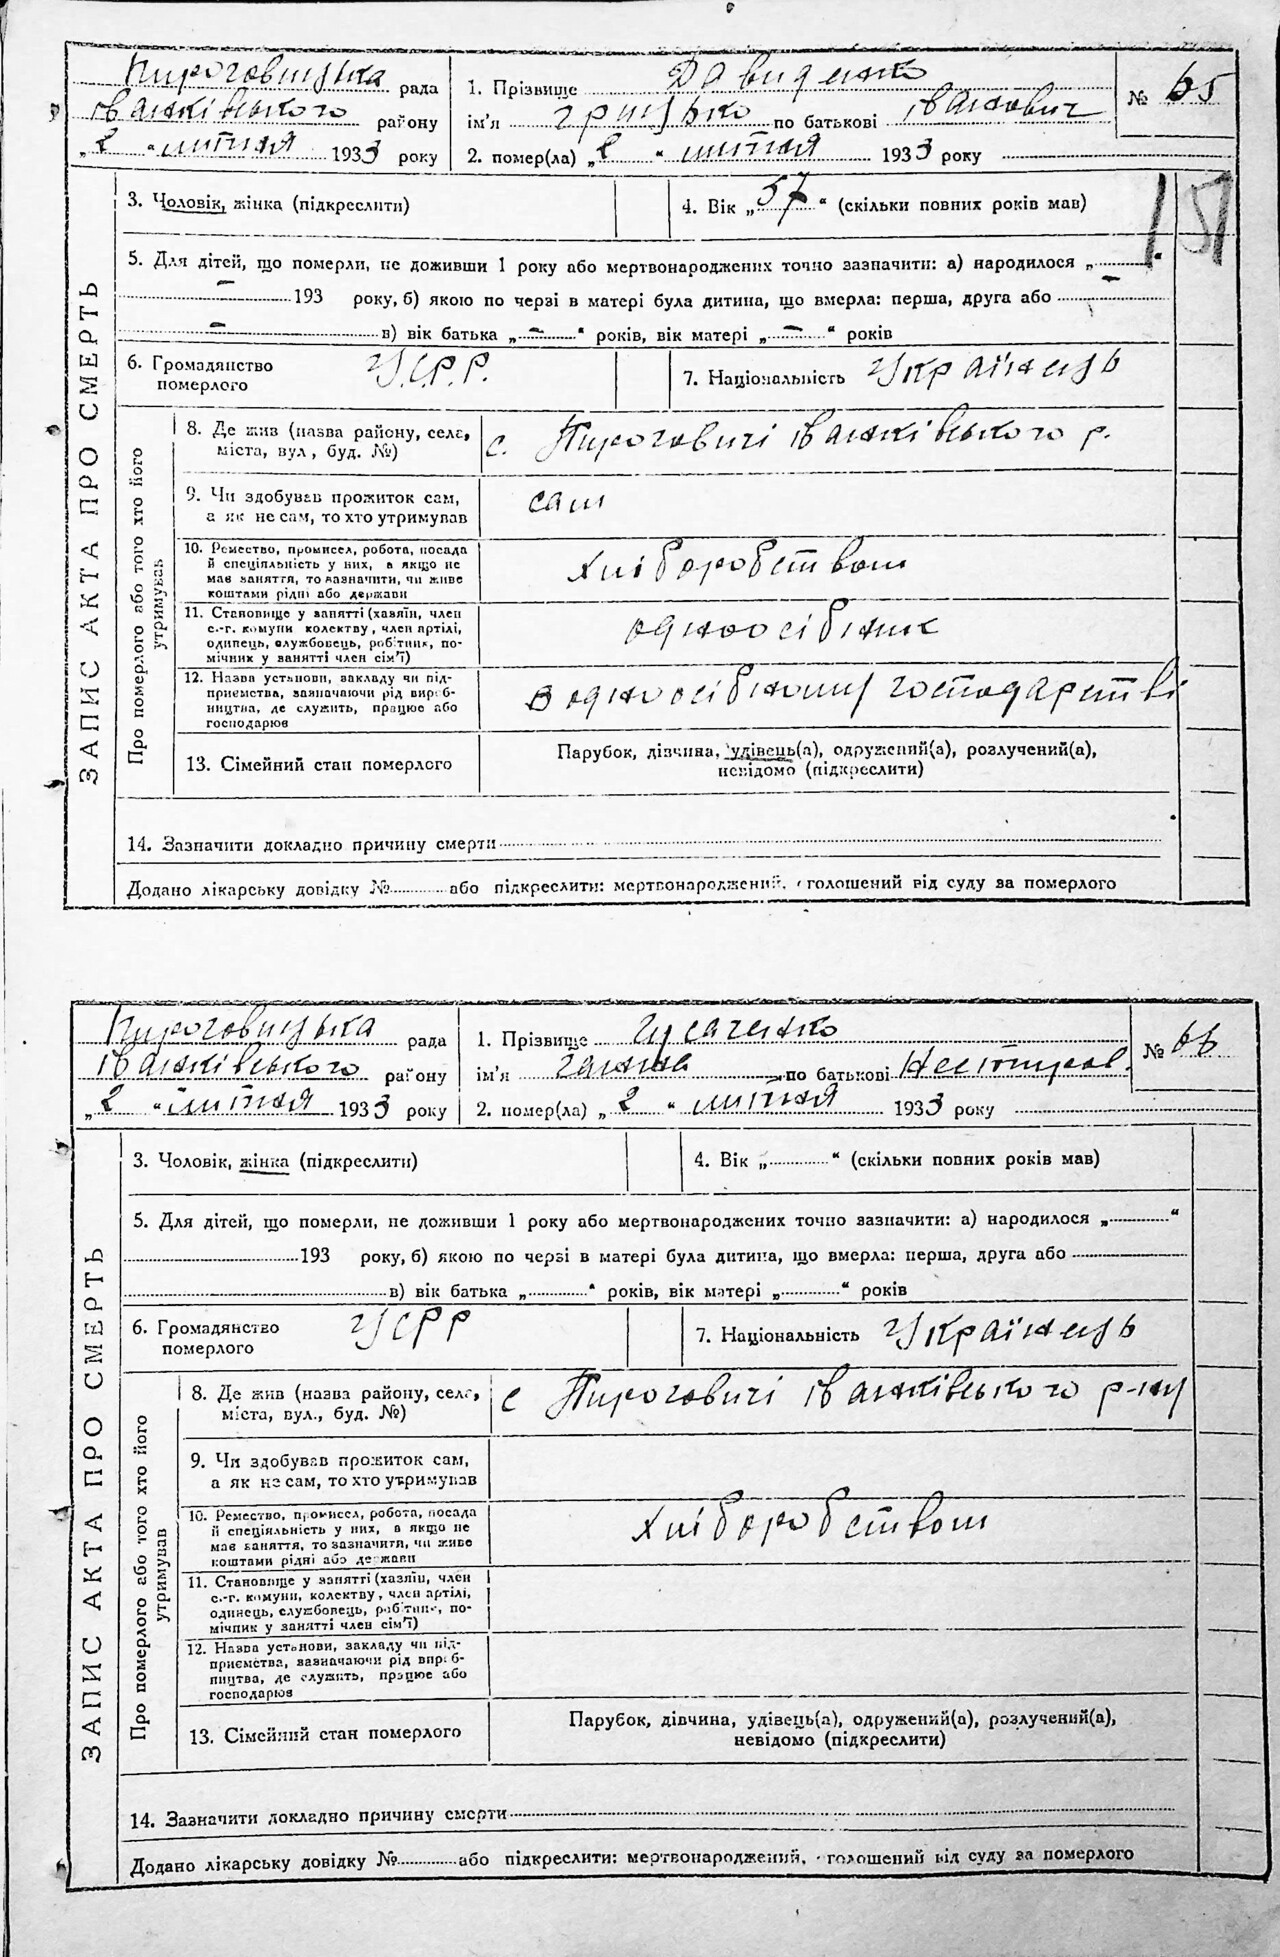 Пироговицька рада
Іванківського району
„2“ липня 1933 року
1. Прізвище Давиденко
ім'я Грицько по батькові Іванович
2. помер(ла) „2“ липня 1933 року
№ 65
151
ЗАПИС АКТА ПРО СМЕРТЬ
3. Чоловік, жінка (підкреслити)
4. Вік „57“ (скільки повних років мав)
5. Для дітей, що померли, не доживши 1 року або мертвонароджених точно зазначити: а) народилося „–“
– 193 року, б) якою по черзі в матері була дитина, що вмерла: перша, друга або –
– в) вік батька „–“ років, вік матері „–“ років
6. Громадянство
померлого
У.С.Р.Р.
7. Національність Українець
Про померлого або того хто його
утримував
8. Де жив (назва району, села,
міста, вул, буд. №)
с. Пироговичі Іванківського р.
9. Чи здобував прожиток сам,
а як не сам, то хто утримував
сам
10. Ремество, промисел, робота, посада
й спеціяльність у них, а якщо не
мав заняття, то зазначити, чи живе
коштами рідні або держави
хліборобством
11. Становище у занятті (хазяїн, член
с.-г. комуни колектву, член артілі,
одинець, службовець, робітник, по-
мічник у занятті член сім'ї)
одноосібник
12. Назва установи, закладу чи під-
приємства, зазначаючи рід вироб-
ництва, де служить, працює або
господарює
в одноосібному господарстві
13. Сімейний стан померлого
Парубок, дівчина, удівець(а), одружений(а), розлучений(а),
невідомо (підкреслити)
14. Зазначити докладно причину смерти
Додано лікарську довідку № або підкреслити: мертвонароджений, голошений від суду за померлого
Пироговицька рада
Іванківського району
„2“ липня 1933 року
1. Прізвище Гусаченко
ім'я Ганна по батькові
2. помер(ла) „2“ липня 1933 року
№ 66
ЗАПИС АКТА ПРО СМЕРТЬ
3. Чоловік, жінка (підкреслити)
4. Вік „ “ (скільки повних років мав)
5. Для дітей, що померли, не доживши 1 року або мертвонароджених точно зазначити: а) народилося „ “
193 року, б) якою по черзі в матері була дитина, що вмерла: перша, друга або
в) вік батька „ “ років, вік матері „ “ років
6. Громадянство
померлого
УСРР
7. Національність Українець
Про померлого або того хто його
утримував
8. Де жив (назва району, села,
міста, вул., буд. №)
с Пироговичі Іванківського р-ну
9. Чи здобував прожиток сам,
а як не сам, то хто утримував
10. Ремество, промисел, робота, посада
й спеціяльність у них, а якщо не
має заняття, то зазначити, чи живе
коштами рідні або держави
хліборобством
11. Становище у занятті (хазяїн, член
с.-г. комуни, колектву, член артілі,
одинець, службовець, робітник, по-
мічник у занятті член сім'ї)
12. Назва установи, закладу чи під-
приємства, зазначаючи рід вироб-
ництва, де служить, працює або
господарює
13. Сімейний стан померлого
Парубок, дівчина, удівець(а), одружений(а), розлучений(а),
невідомо (підкреслити)
14. Зазначити докладно причину смерти
Додано лікарську довідку № або підкреслити: мертвонароджений, голошений від суду за померлого